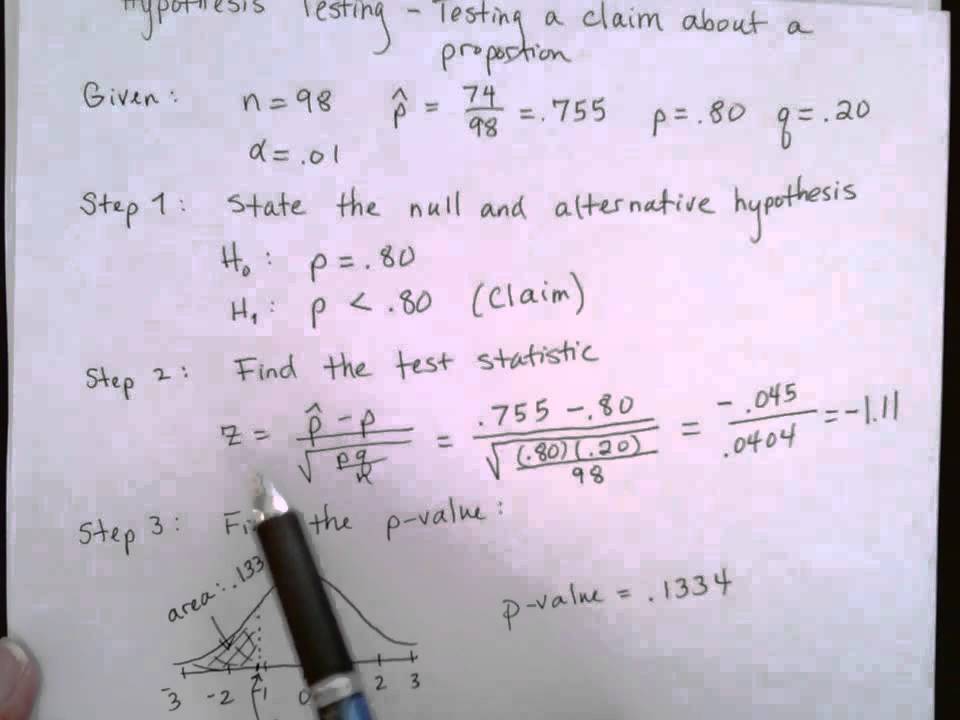 Hypothesis Testing - Testing a claim about a
proportion
Given: n = 98 p̂ = 74/98 = .755 p = .80 q = .20
α = .01
Step 1: State the null and alternative hypothesis
H₀: p = .80
H₁: p < .80 (Claim)
Step 2: Find the test statistic
z = (p̂ - p)/√(pq/n) = (.755 - .80)/√((.80)(.20)/98) = -.045/.0404 = -1.11
Step 3: the p-value:
area: .133
p-value = .1334
-3 -2 -1 0 2 3